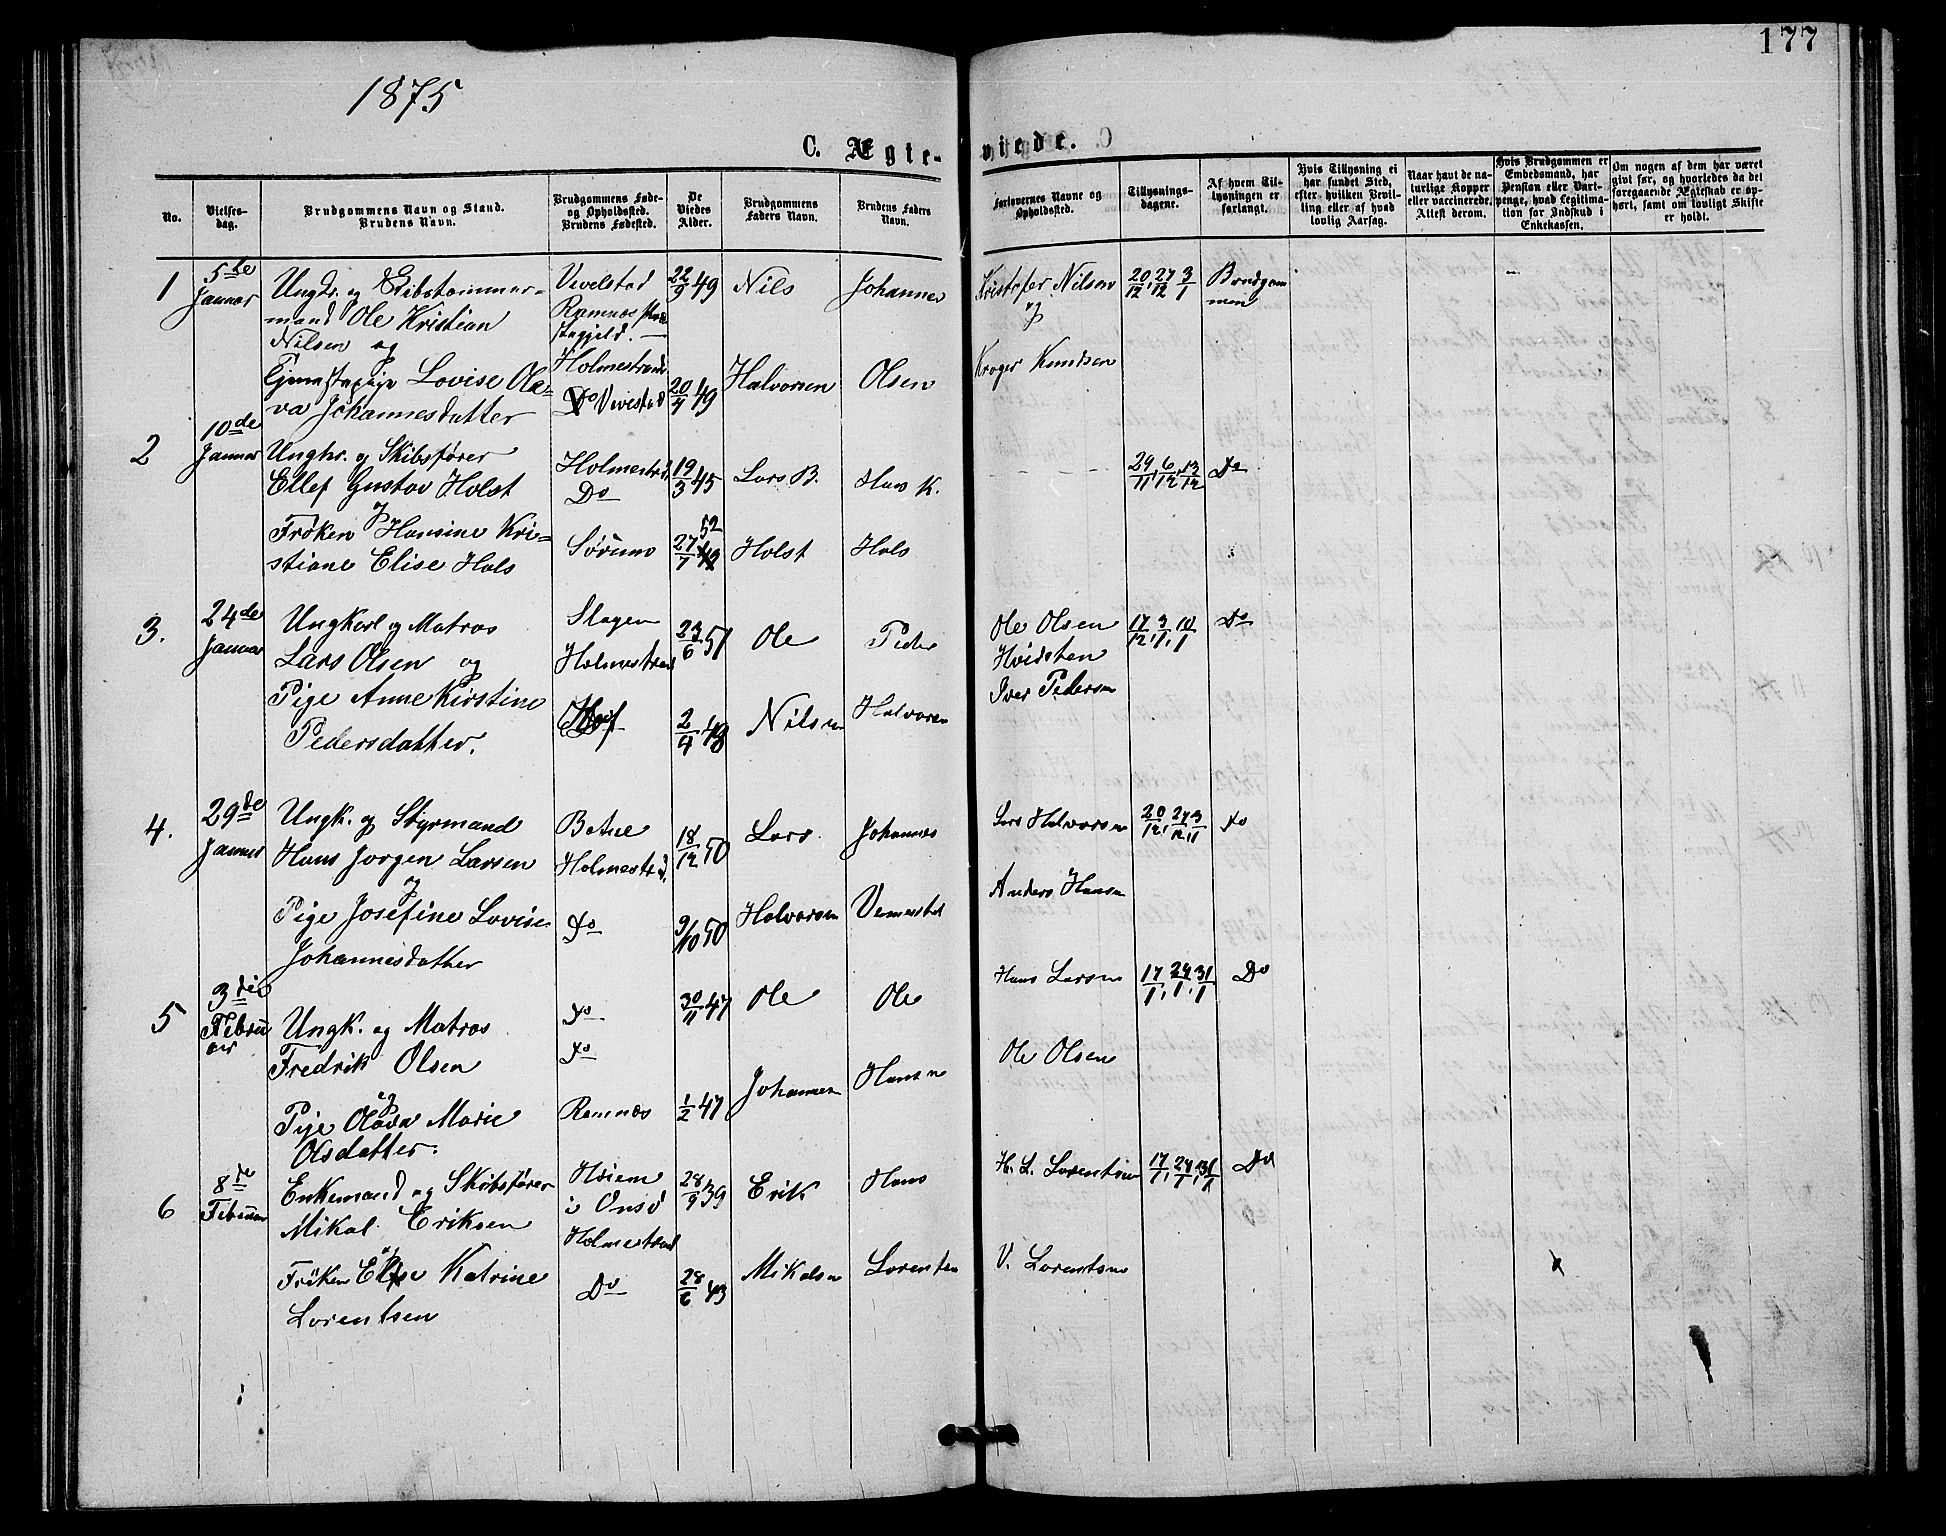 177
1875
C. Ægte- viede.
No.
Vielses-
dag.
Brudgommens Navn og Stand.
Brudens Navn.
Brudgommens Føde-
og Opholdssted.
Brudens Fødested.
De
Viedes
Alder.
Brudgommens
Faders Navn.
Brudens Faders
Navn.
Forlovernes Navne og
Opholdssted.
Tillysnings-
dagene.
Af hvem Til-
lysningen er
forlangt.
Hvis Tillysning ei
har fundet Sted,
efter hvilken Bevil-
ling eller af hvad
lovlig Aarsag.
Naar havt de na-
turlige Kopper
eller vaccinerede.
Attest derom.
Hvis Brudgommen er
Embedsmand, har
Pension eller Vart-
penge, hvad Legitima-
tion for Indskud i
Enkekassen.
Om nogen af dem har været
givt før, og hvorledes da det
foregaaende Ægteskab er op-
hørt, samt om lovligt Skifte
er holdt.
1
5te
Januar
Ungkr. og Skibstømmer-
mand Ole Kristian
Nilsen og
Tjenestepige Lovise Ole-
va Johannesdatter
Vivelstad
Ramnæs Præ
stegjeld.
Holmestrand
Do Vivestad
22/9 49
20/7 49
Nils
Halvorsen
Johannes
Olsen
Kristofer Nilsen
og
Kroger Knudsen
20/12, 27/12 3/1
Brudgom
men
2
10de
Januar
Ungkr. og Skibsfører
Ellef Gustav Holst
og
Frøken Hansine Kri-
stiane Elise Hals
Holmestrd.
Do
Sørum
19/3 45
27/7 52
Lars B.
Holst
Hans K.
Hals
29/11, 6/12, 13/12
Do
3.
24de
Januar
Ungkarl og Matros
Lars Olsen og
Pige Anne Kirstine
Pedersdatter.
Slagen
Holmestrand
Hof
23/6 51
2/4 48
Ole
Nilsen
Peder
Halvorsen
Ole Olsen
Hvidsten
Iver Pedersen
17/12, 3/1, 10/1
Do
4.
29de
Januar
Ungk. og Styrmand
Hans Jørgen Larsen
og
Pige Josefine Lovise
Johannesdatter
Botne
Holmestrd.
Do
18/12 50
9/10 50
Lars
Halvorsen
Johannes
Lars Halvorsen
Anders Hansen
20/12, 27/12 3/1
Do
5
3die
Februar
Ungk. og Matros
Fredrik Olsen
og
Pige Olava Marie
Olsdatter.
Do
Do
Ramnæs
30/11 47
1/2 47
Ole
Johannesen
Ole
Hansen
Hans Larsen
Ole Olsen
17/1, 24/1, 31/1
Do
6
8de
Februar
Enkemand og Skibsfører
Mikal Eriksen
og
Frøken Elise Katrine
Lorentsen
i Onsø
Holmestrand
Do
28/9 39
28/6 43
Erik
Mikalsen
Hans
Lorentsen
H. L. Lorentsen
V. Lorentsen
17/1, 24/1 31/1
Do